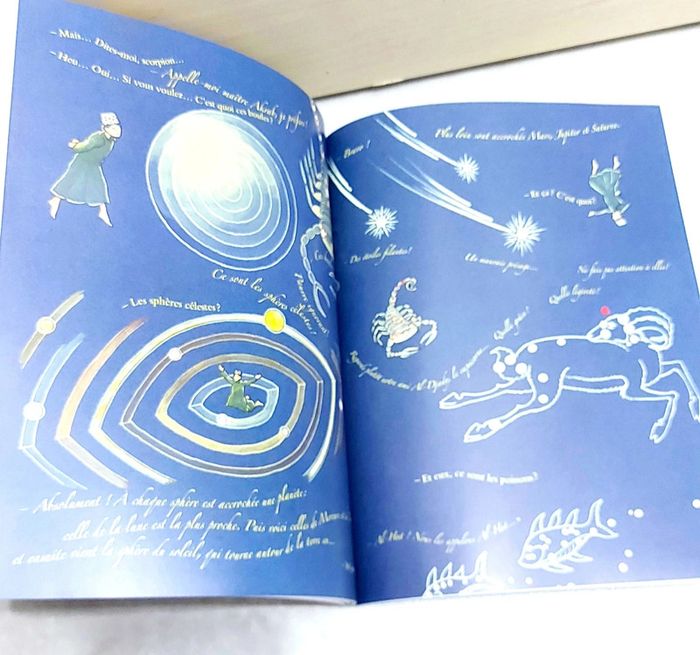 – Mais... Dites-moi, scorpion...
– Appelle-moi maître Akrab, je préfère !
– Heu... Oui... Si vous voulez... C'est quoi ces boules ?
Ce sont les sphères célestes !
– Les sphères célestes ?
– Absolument ! À chaque sphère est accrochée une planète :
celle de la lune est la plus proche. Puis voici celles de
et ensuite vient la sphère du soleil, qui tourne autour de la terre
Plus loin sont accrochées Mars, Jupiter et Saturne.
– Et ça ? C'est quoi ?
– Des étoiles filantes !
Un mauvais présage...
Ne fais pas attention à elles !
Quelle légèreté !
– Et eux, ce sont les poissons ?
– Al Hut ! Nous les appelons Al Hut...